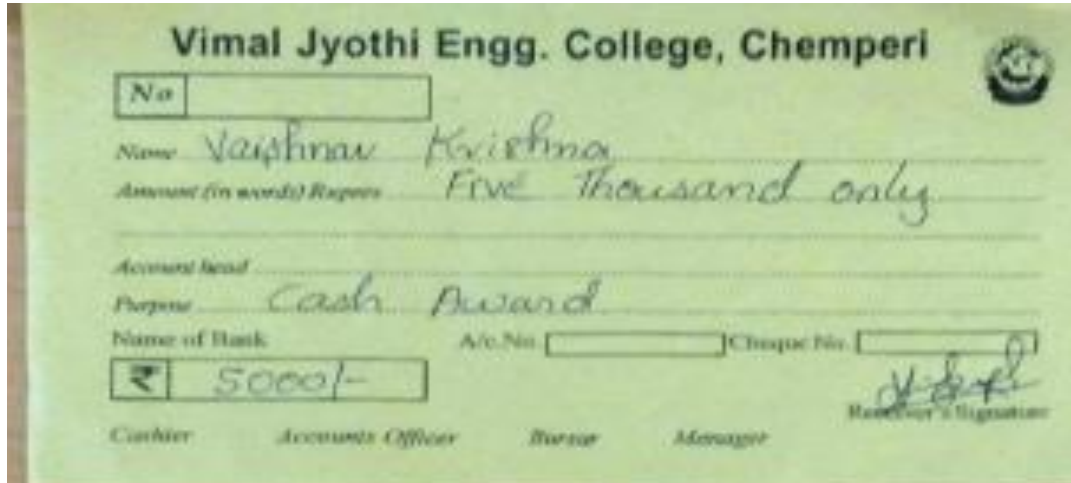 Vimal Jyothi Engg. College, Chemperi
No
Name Vaishnav Krishna
Amount (in words) Rupees Five Thousand only
Account head
Purpose Cash Award
Name of Bank A/c.No. Cheque No.
₹ 5000/-
Receiver's Signature
Cashier Accounts Officer Bursar Manager